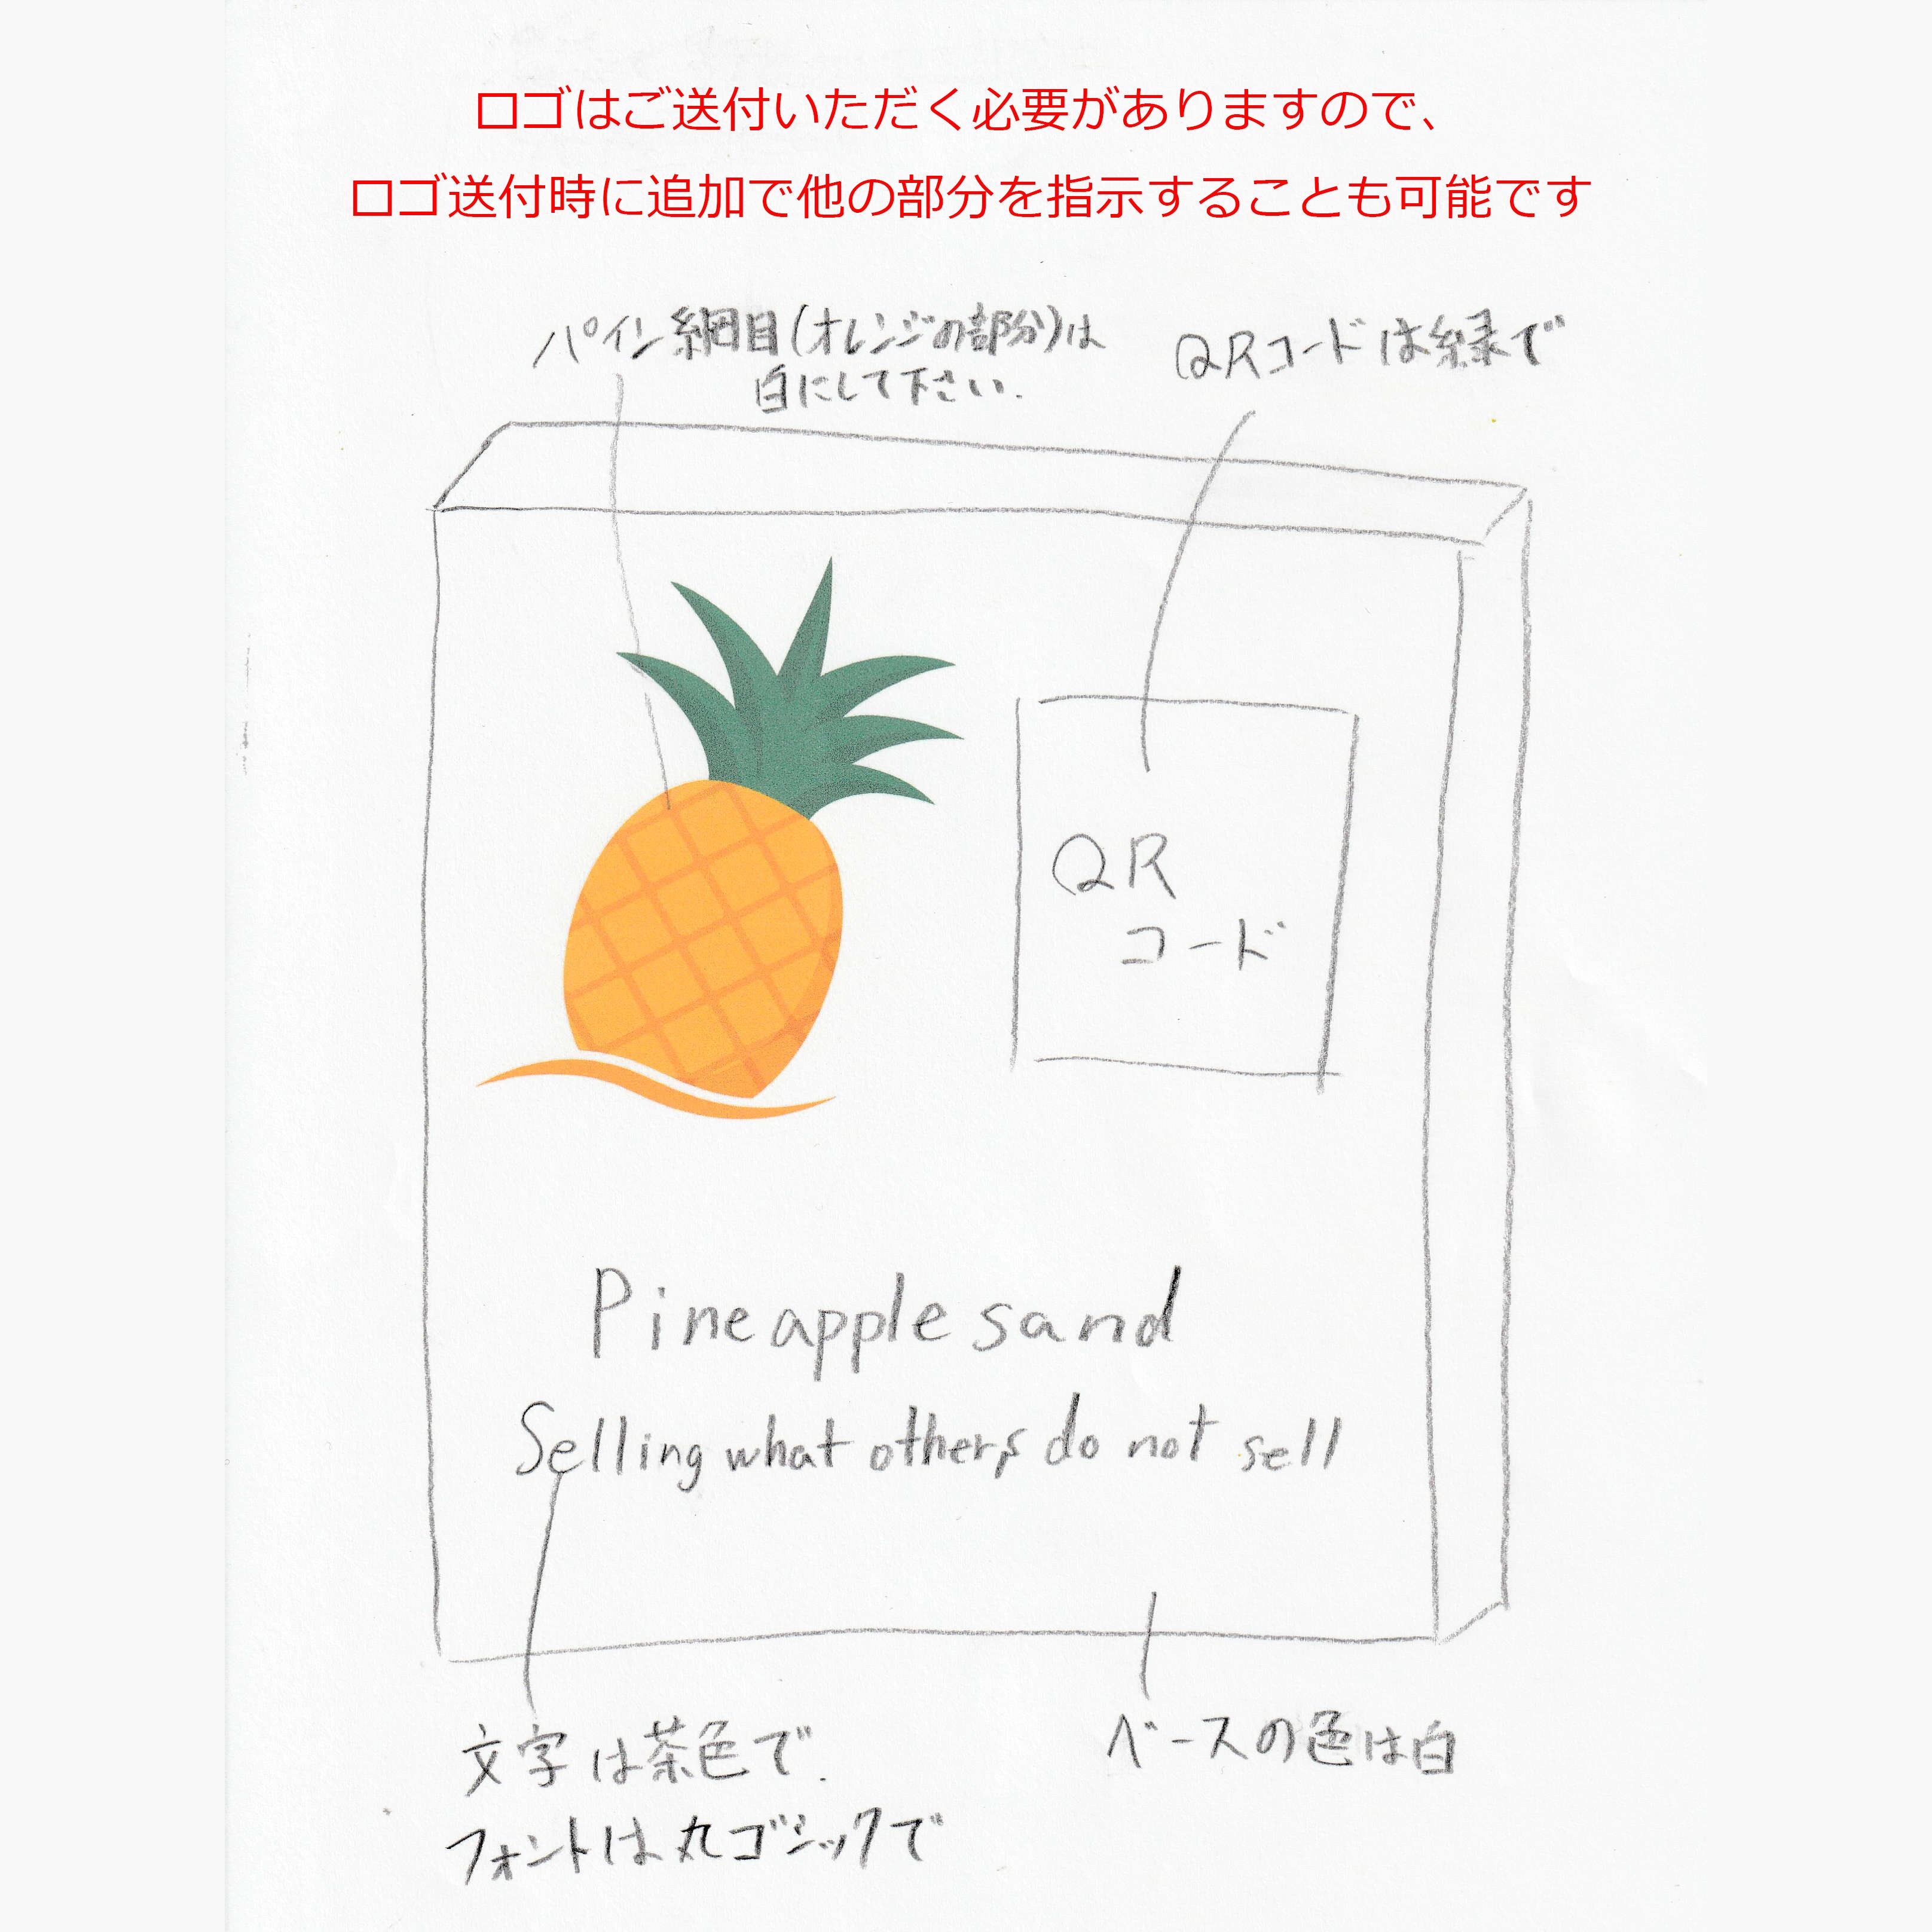 ロゴはご送付いただく必要がありますので、
ロゴ送付時に追加で他の部分を指示することも可能です
パイン網目(オレンジの部分)は
白にして下さい.
QRコードは緑で
QR
コード
Pineapple sand
Selling what others do not sell
文字は茶色で.
フォントは丸ゴシックで
ベースの色は白